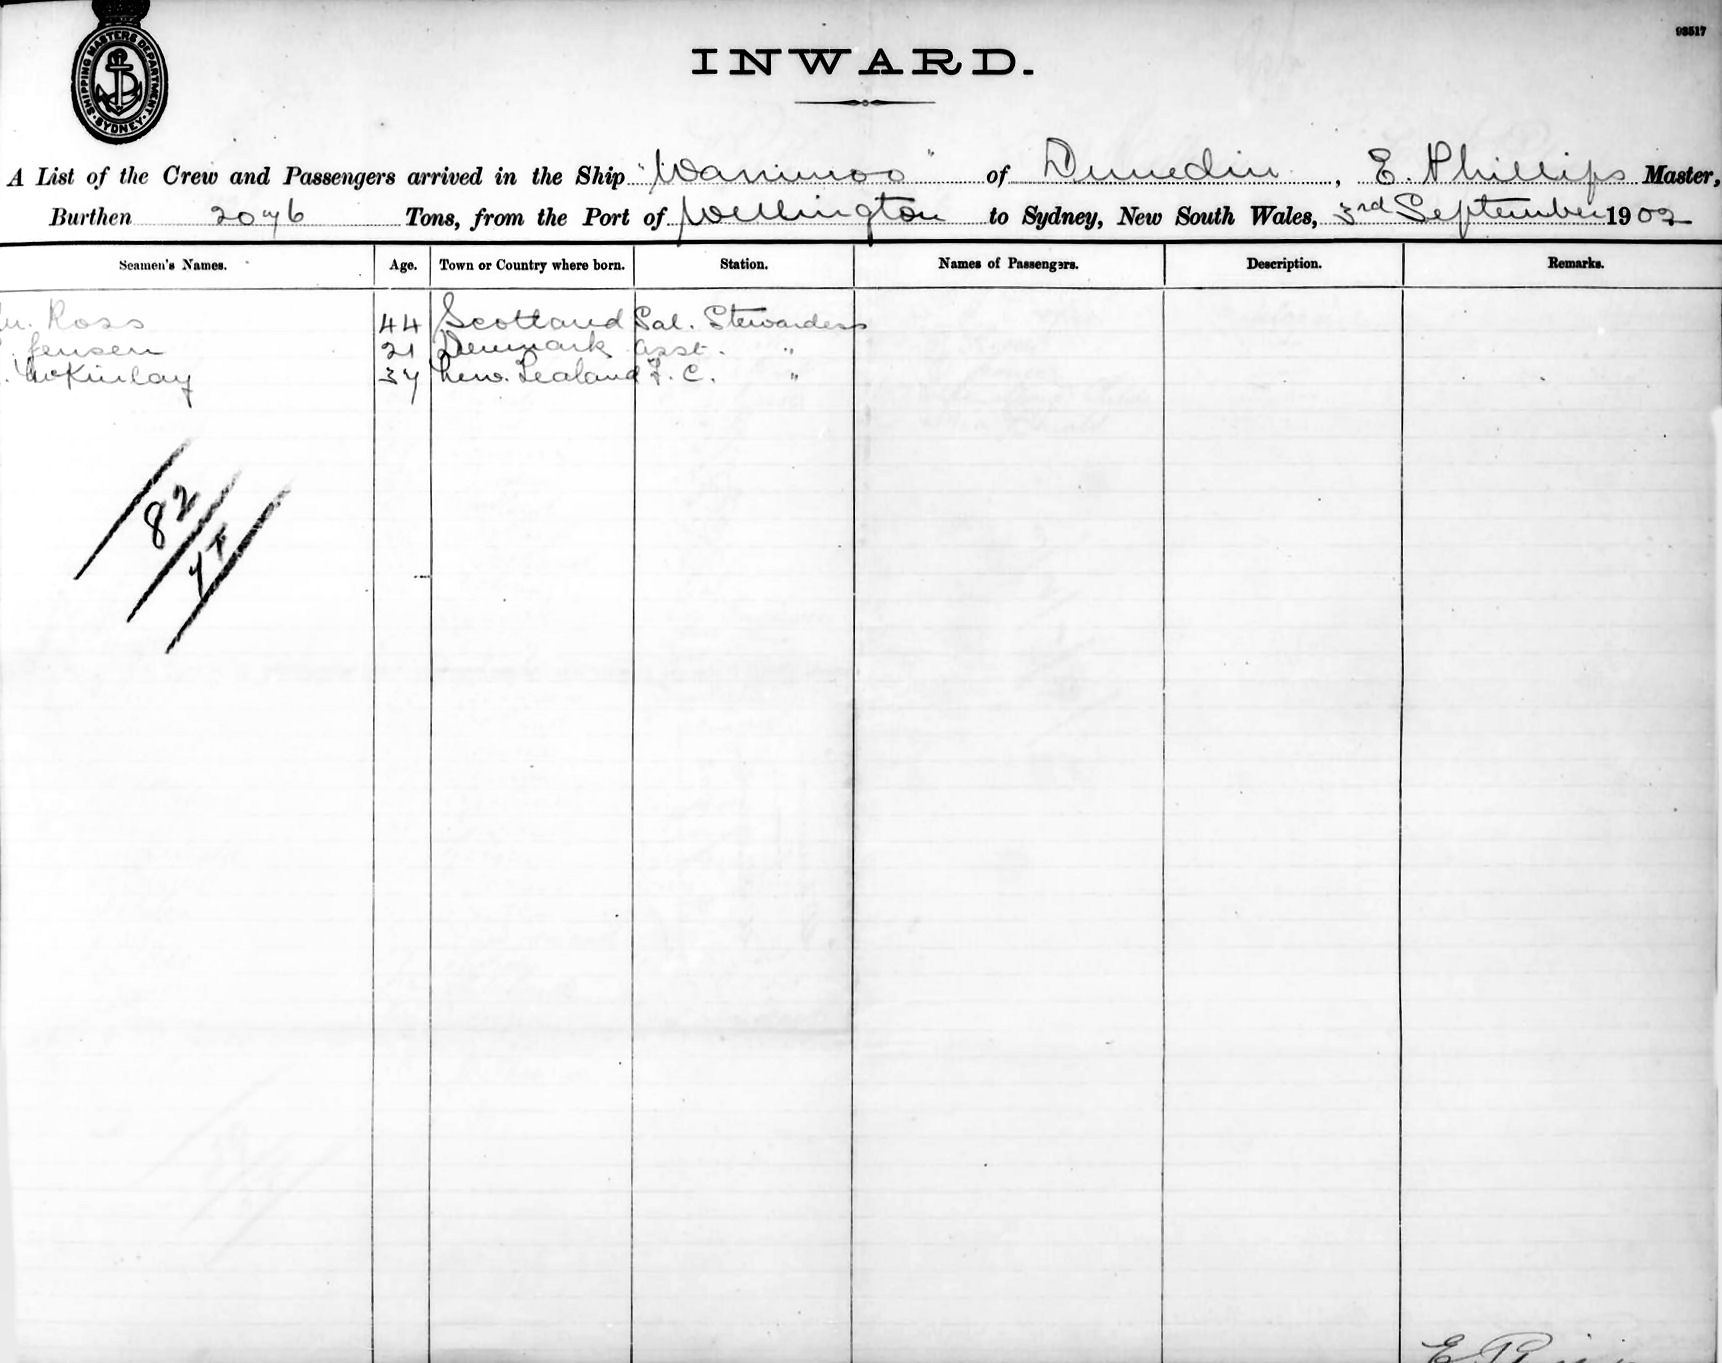 93517
SHIPPING MASTERS DEPARTMENT
SYDNEY
INWARD.
A List of the Crew and Passengers arrived in the Ship "Warrimoo" of Dunedin, E. Phillips Master,
Burthen 2076 Tons, from the Port of Wellington to Sydney, New South Wales, 3rd September 1902
Seamen's Names. Age. Town or Country where born. Station. Names of Passengers. Description. Remarks.
Ross 44 Scotland Sal. Stewardess
Jensen 21 Denmark Asst. "
McKinlay 37 New Zealand F. C. "
82